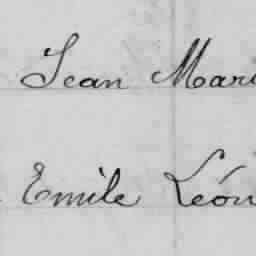 Jean Mari
Emile León